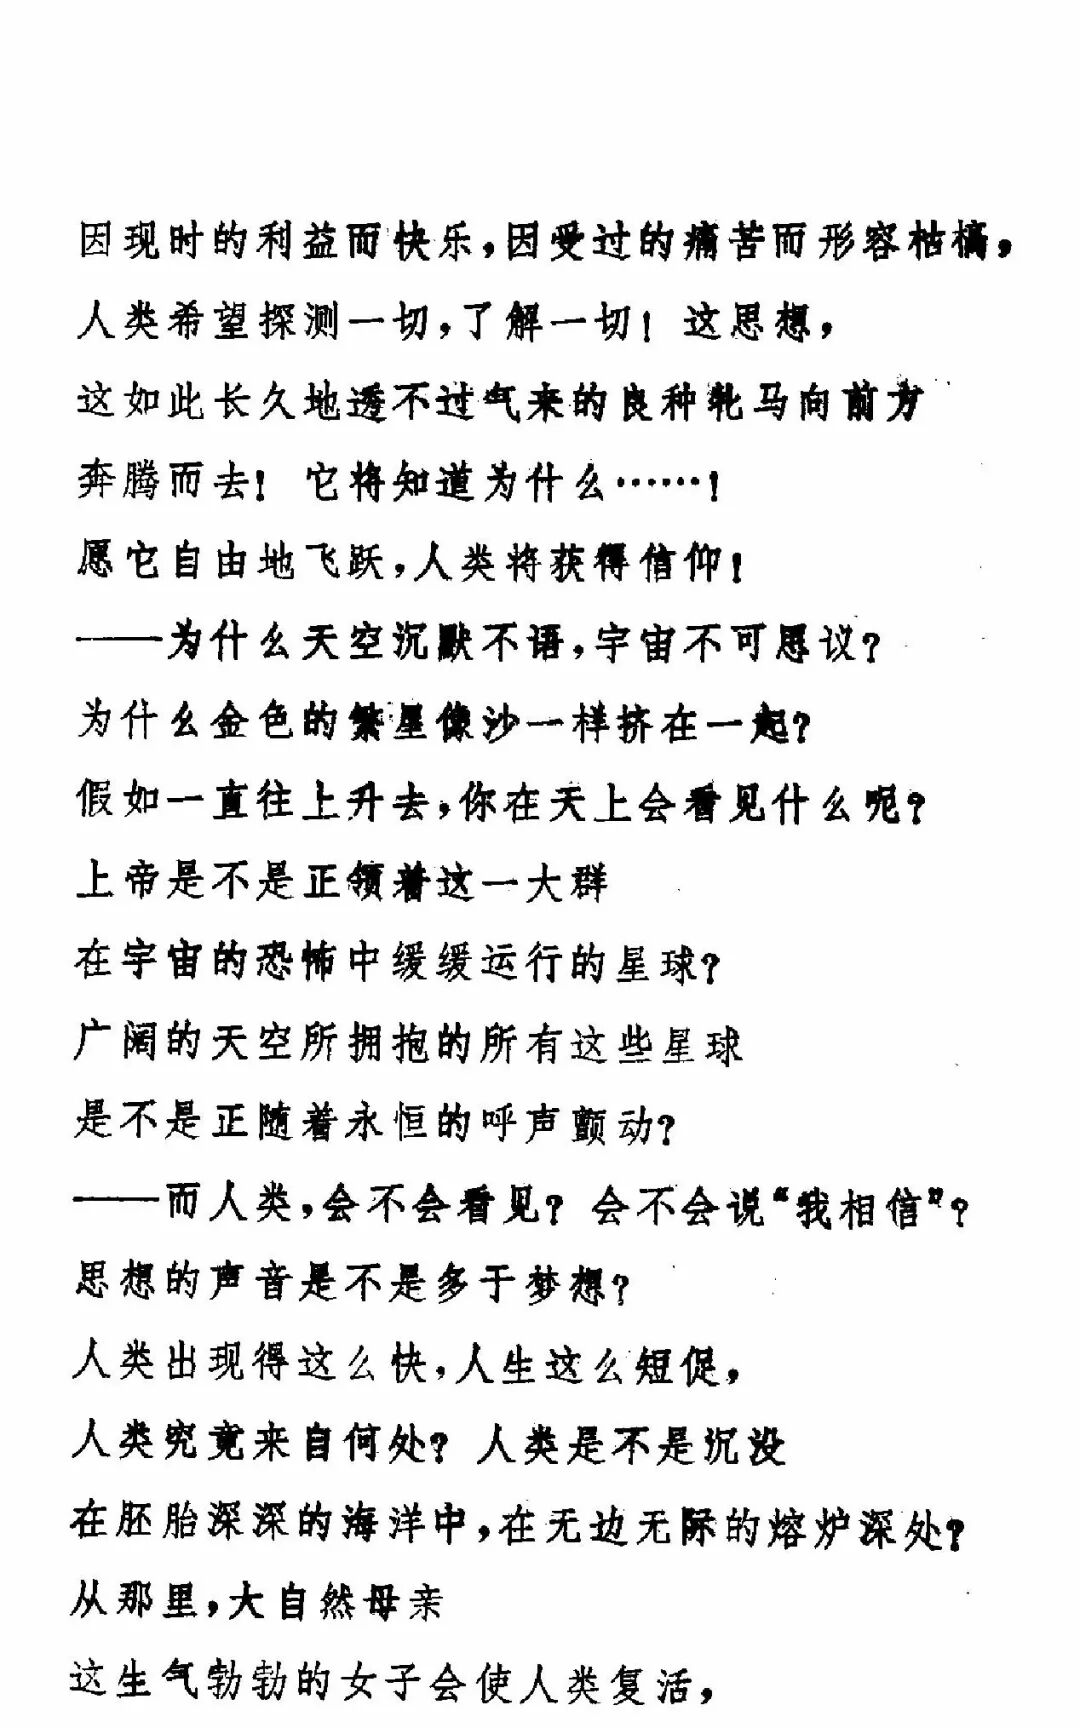 因现时的利益而快乐，因受过的痛苦而形容枯槁，
人类希望探测一切，了解一切！这思想，
这如此长久地透不过气来的良种牝马向前方
奔腾而去！它将知道为什么……！
愿它自由地飞跃，人类将获得信仰！
——为什么天空沉默不语，宇宙不可思议？
为什么金色的繁星像沙一样挤在一起？
假如一直往上升去，你在天上会看见什么呢？
上帝是不是正领着这一大群
在宇宙的恐怖中缓缓运行的星球？
广阔的天空所拥抱的所有这些星球
是不是正随着永恒的呼声颤动？
——而人类，会不会看见？会不会说“我相信”？
思想的声音是不是多于梦想？
人类出现得这么快，人生这么短促，
人类究竟来自何处？人类是不是沉没
在胚胎深深的海洋中，在无边无际的熔炉深处？
从那里，大自然母亲
这生气勃勃的女子会使人类复活，